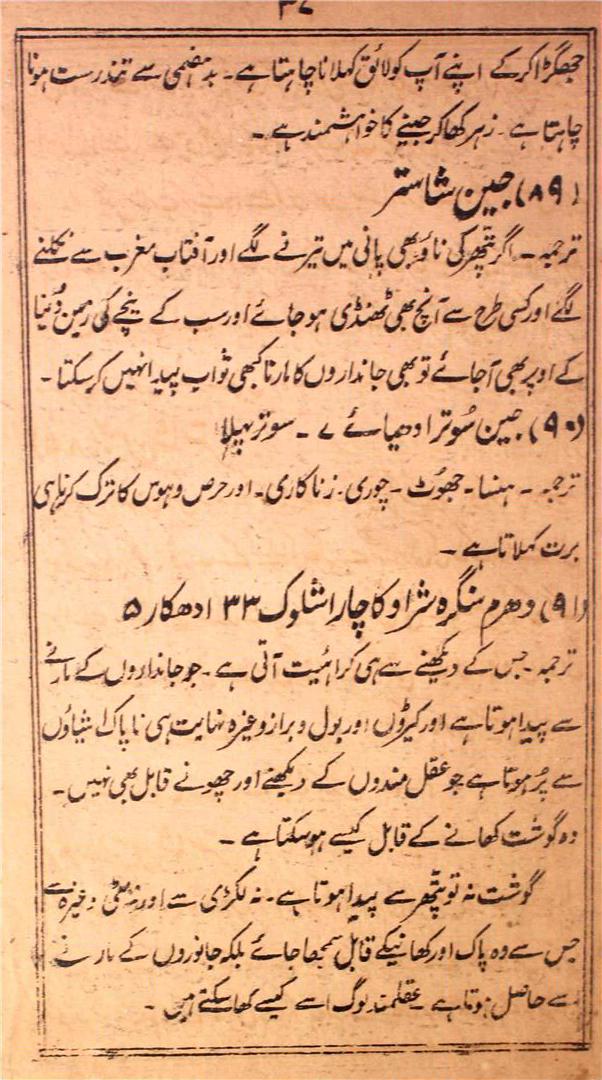 ۳۷
جھگڑا کر کے اپنے آپ کو لائق کہلانا چاہتا ہے۔ بدہضمی سے تندرست ہونا
چاہتا ہے۔ زہر کھا کر جینے کا خواہشمند ہے۔
(۸۹) جین شاستر
ترجمہ۔ اگر پتھر کی ناؤ بھی پانی میں تیرنے لگے اور آفتاب مغرب سے نکلنے
لگے اور کسی طرح سے آنچ بھی ٹھنڈی ہو جائے اور سب کے نیچے کی زمین دُنیا
کے اوپر بھی آجائے تو بھی جانداروں کا مارنا کبھی ثواب پیدا نہیں کر سکتا۔
(۹۰) جین سُوتر ادھیائے ۷۔ سوتر پہلا
ترجمہ۔ ہنسا۔ جھوُٹ۔ چوری۔ زناکاری۔ اور حرص و ہوس کا ترک کرنا ہی
برت کہلاتا ہے۔
(۹۱) دھرم سنگرہ شراوکاچار اشلوک ۳۳ ادھکار ۵
ترجمہ۔ جس کے دیکھنے سے ہی کراہیت آتی ہے۔ جو جانداروں کے مارنے
سے پیدا ہوتا ہے اور کیڑوں اور بول و براز وغیرہ نہایت ہی ناپاک اشیاؤں
سے پُر ہوتا ہے جو عقل مندوں کے دیکھنے اور چھونے قابل بھی نہیں۔
وہ گوشت کھانے کے قابل کیسے ہو سکتا ہے۔
گوشت نہ تو پتھر سے پیدا ہوتا ہے۔ نہ لکڑی سے اور نہ مٹی وغیرہ سے
جس سے وہ پاک اور کھانیکے قابل سمجھا جائے بلکہ جانوروں کے مارنے
سے حاصل ہوتا ہے۔ عقلمند لوگ اسے کیسے کھا سکتے ہیں۔